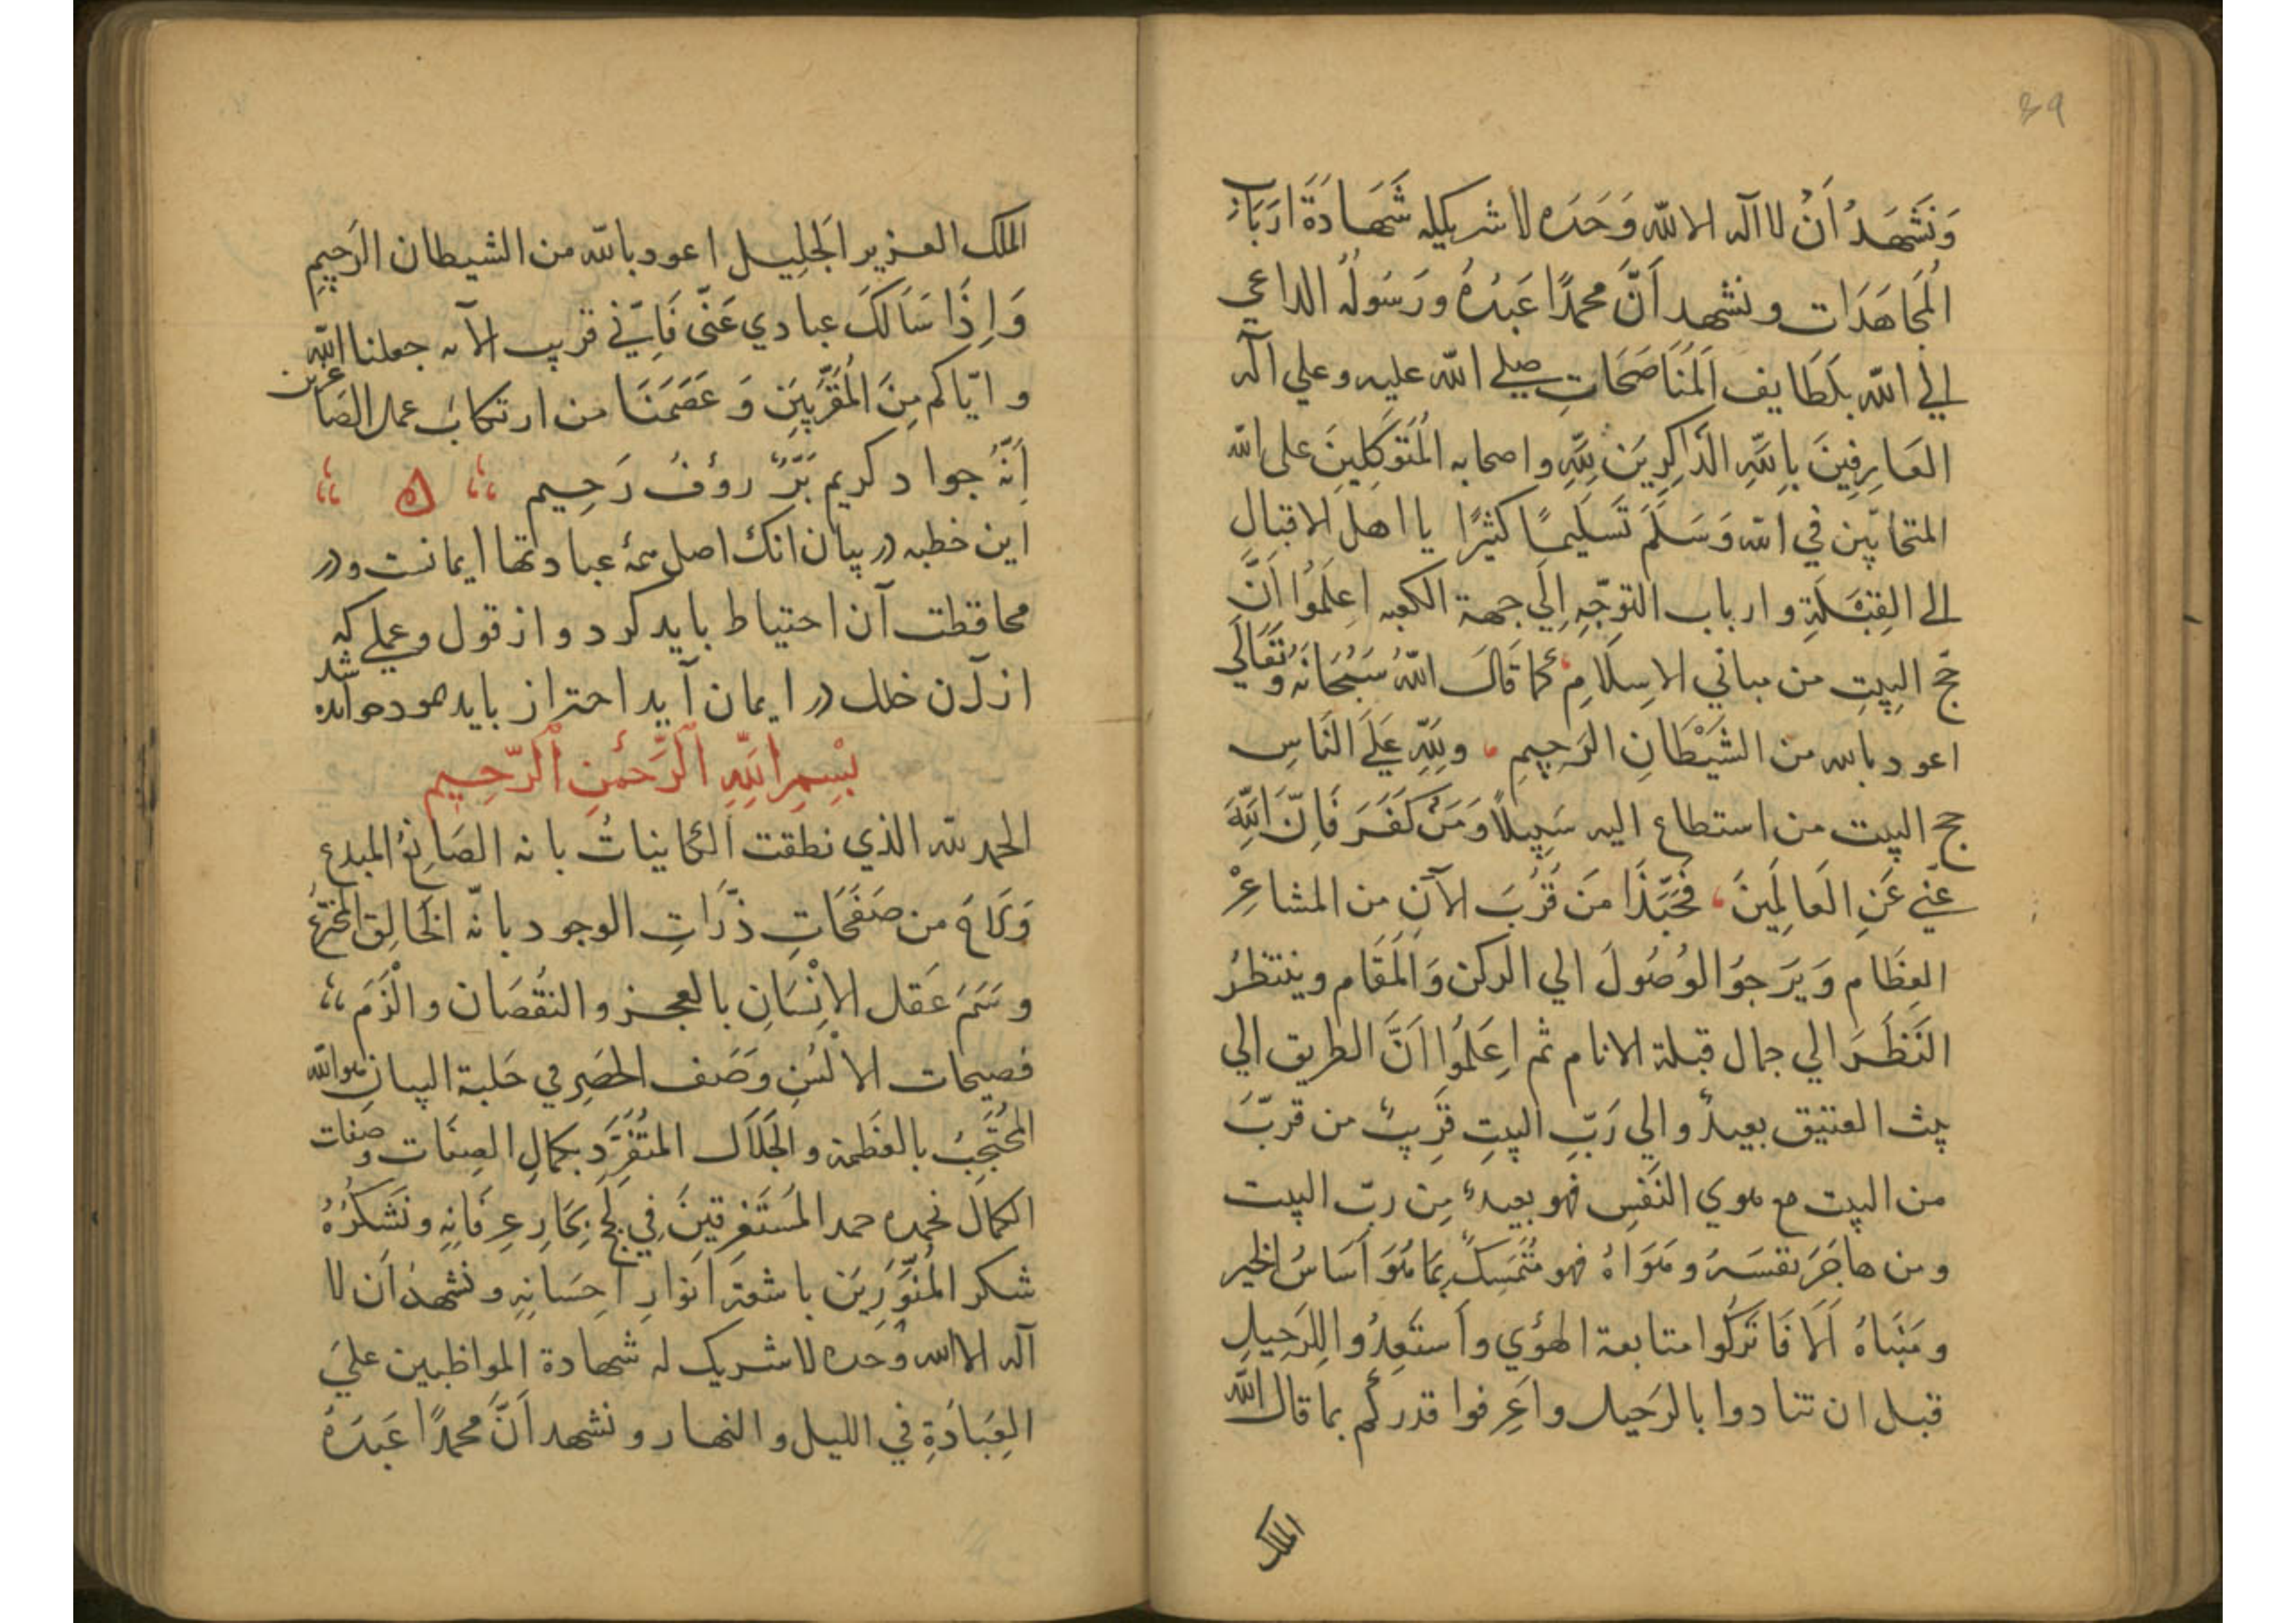 ٤٩
وَنَشْهَدُ اَنْ لا اله الا الله وَحَدَه لا شريكله شَهَادَةَ اَرْبَابِ
المُجَاهَدَات ونشهد اَنَّ محمدًا عَبدُهُ ورَسُولُه الداعي
الي الله بلَطَايف المُنَاصَحَاتِ صلي الله عليه وعلي آله
العَارِفِينَ بِاللّهِ الذَاكِرِيَن لِلّهِ واصحابه المُتَوَكِلِينَ على الله
المتحابّين في الله وَسَلَمَ تَسَليمًا كثيرًا يا اهل الاقبال
الى القِبَلَةِ وارباب التوجّهِ اِلَي جهة الكعبه اِعلَمُوا اَنَّ
حَجّ البيتِ من مباني الاِسلَامِ كما قَالَ اللهُ سُبْحَانَهُ وَتَعَالَي
اعود بالله من الشَيْطَانِ الرَجِيمِ وَلِلّهِ عَلَي النَاسِ
حج البيت من استطاع اليه سَبِيلًا وَمَنْ كَفَرَ فَاِنّ اللّهَ
غَنِي عَنِ العَالَمِينَ فَحَبّذَا مَن قَرُبَ الآنِ مِن المشاعِرْ
العِظَام وَيَرجوُ الوُصُولَ الي الركن وَالمَقَام وينتظرُ
النَظَرَ الي جمال قبلة الانام ثم اعِلَمُوا اَنَّ الطريق الي
بيت العتيق بعيدٌ والي رَبِّ البيتِ قَرِيبٌ من قربّ
من البيت مع هوي النَفسِ فهو بعيدٌ مِن ربّ البيت
ومن هاجَرَ نفسَهُ وهَوَاهُ فهو مُتَمَسِكٌ بِمَا هُوَ اَسَاسُ الخير
ومَبنَاهُ اَلَا فَاتَركُوا متابعة الهوي وأستَعِدُوا لِلرَحِيلِ
قبل ان تنادوا بالرَحيل واعرِفوا قدركُم بما قال الله
الملك
الملك العزيز الجَلِيل اعود بالله من الشيطان الرَجِيمِ
وَاِذَا سَاَلَكَ عبادي عَنّى فَاِنّي قريب الآيه جعلنا الله
وايّاكم مِنَ المُقَرَّبِيَن وَعَصَمَنَا من ارتكاب عمل الصاغرين
اِنّهُ جواد كريم بَرٌّ روُفٌ رَحِيم
اين خطبه در بيان انك اصل همهٔ عبادتها ايمانست ودر
محافظت آن احتياط بايد كرد واز قول وعملي كه
از آن خلل در ايمان آيد احتراز بايد نمود خوانده شد
بِسْمِ اللّهِ الرَّحْمنِ الرّحِيم
الحمد لله الذي نطقت الكاينَاتُ بانه الصَانِعُ المبدع
وَلَاحَ من صَفَحَاتِ ذَرَّاتِ الوجود بانّه الخَالِقِ المخترِعُ
وسَمَ عَقل الاِنْسَانِ بالعجز والنقُصَان والْزَمَ
فصيحات الالسُنِ وصَف الحَصَرِ في حَلبة البيان هو الله
المحُتَجِبُ بالعَظمة والجَلاَل المتَفَرّدِ بكمالِ الصِفَات وصفات
الكمال نحمده حمد المُستَغرِقينَ فِي لُججِ بِحَارِ عِرفَانِهِ ونَشكُرُهُ
شكر المُنَوَّرِيَن باشعّةِ اَنوَارِ اَحِسَانِهِ ونشهدُ اَن لا
اله الا الله وُحَده لا شريك له شهادة المواظبين عليَ
العِبَادَةِ في الليل والنهار ونشهد اَنَّ محمدًا عَبدَهُ